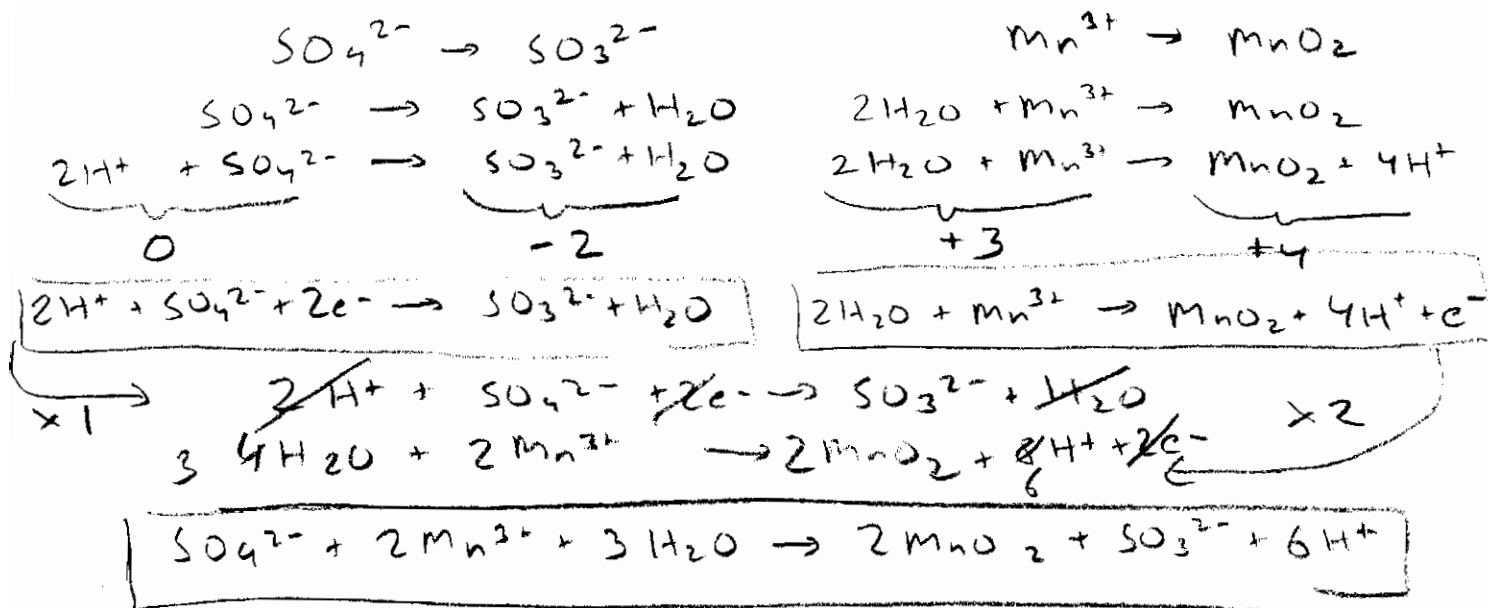 SO₄²⁻ → SO₃²⁻
SO₄²⁻ → SO₃²⁻ + H₂O
2H⁺ + SO₄²⁻ → SO₃²⁻ + H₂O
0 -2
2H⁺ + SO₄²⁻ + 2e⁻ → SO₃²⁻ + H₂O
Mn³⁺ → MnO₂
2H₂O + Mn³⁺ → MnO₂
2H₂O + Mn³⁺ → MnO₂ + 4H⁺
+3 +4
2H₂O + Mn³⁺ → MnO₂ + 4H⁺ + e⁻
×1 2H⁺ + SO₄²⁻ + 2e⁻ → SO₃²⁻ + H₂O ×2
3 4H₂O + 2Mn³⁺ → 2MnO₂ + 8H⁺ + 2e⁻
6
SO₄²⁻ + 2Mn³⁺ + 3H₂O → 2MnO₂ + SO₃²⁻ + 6H⁺